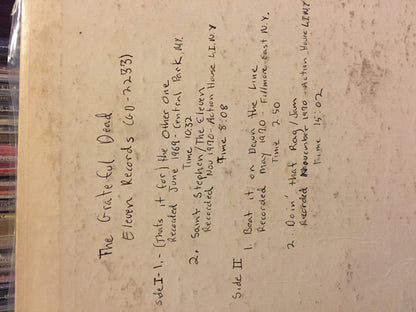 The Grateful Dead
Eleven Records (60-2233)
side I - 1. - (Thats it for) the Other One
Recorded June 1969 - Central Park, NY.
Time 10:32
2. Saint Stephen/The Eleven
Recorded Nov 1970 - Action House L.I.N.Y
Time 8:08
Side II 1. Beat it on Down the Line
Recorded May 1970 - Fillmore East N.Y.
Time 2:50
2. Doin' that Rag/Jam
Recorded November 1970 - Action House LINY
Time 15:02